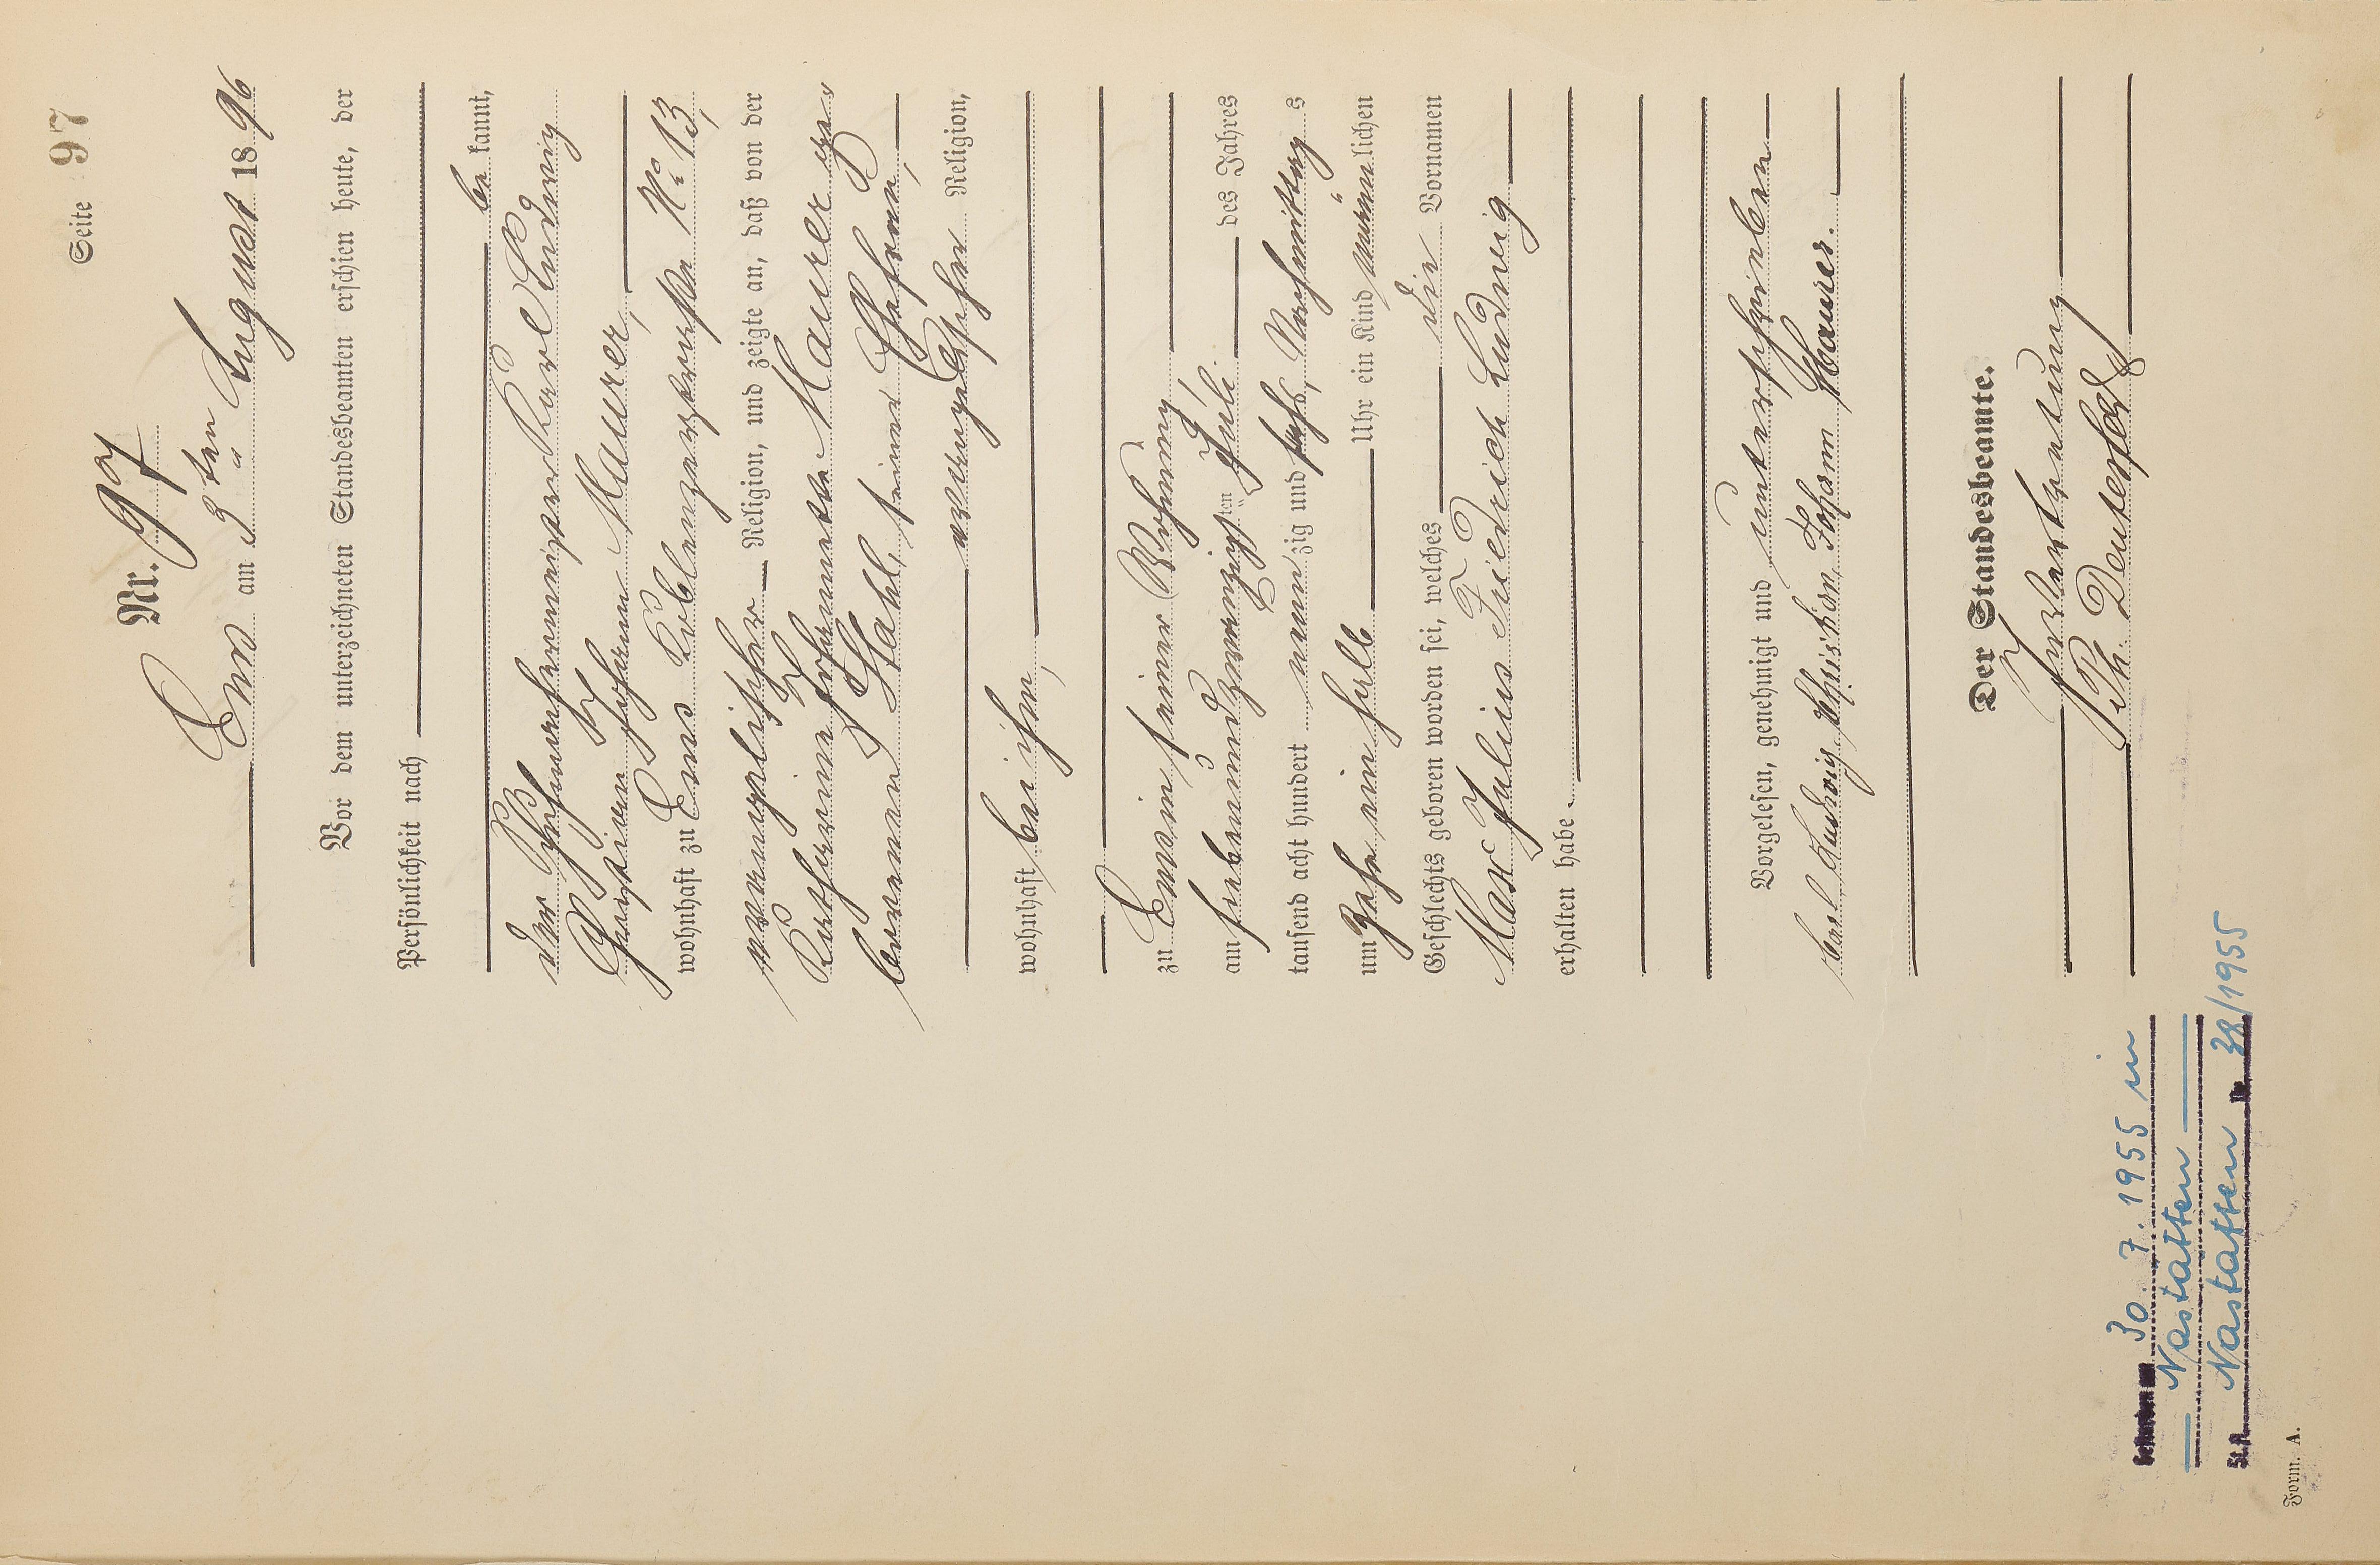 Seite 97
Nr. 97
Ems am 3ten August 1896
Vor dem unterzeichneten Standesbeamten erschien heute, der
Persönlichkeit nach
be kannt,
der Schuhmachermeister Karl Ludwig
Christian Johann Maurer,
wohnhaft zu Ems Koblenzerstraße No. 13,
evangelischer Religion, und zeigte an, daß von der
Katharine Johannette Maurer ge-
borenen Stahl, seiner Ehefrau,
evangelischer Religion,
wohnhaft bei ihm,
zu Ems in seiner Wohnung,
am siebenundzwanzigsten Juli des Jahres
tausend acht hundert neunzig und sechs, Nachmittags
um zehn ein halb Uhr ein Kind männlichen
Geschlechts geboren worden sei, welches die Vornamen
Max Julius Friedrich Ludwig
erhalten habe.
Vorgelesen, genehmigt und unterschrieben
Carl Ludwig Christian Johann Maurer.
Der Standesbeamte.
In Vertretung
Ph.
Gestorben am 30.7.1955 in
Nastätten
St.A. Nastätten Nr. 38/1955
Form. A.